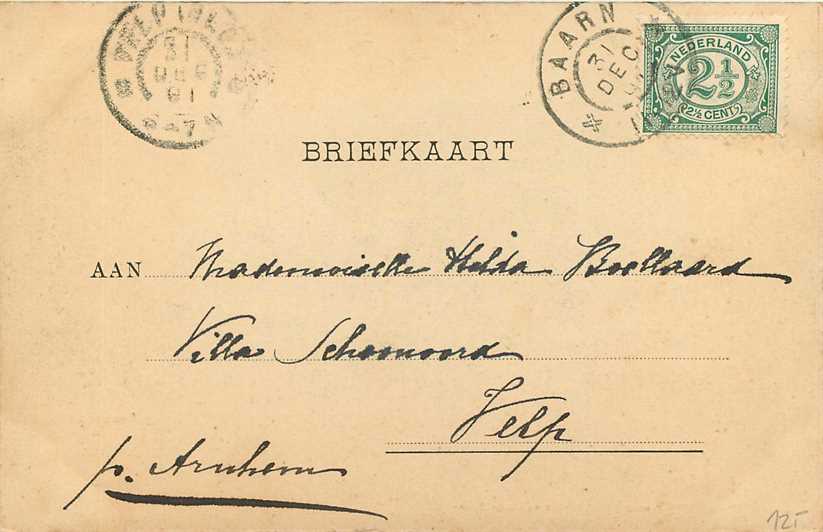 VELP
31
DEC
01
BAARN
31
DEC
NEDERLAND
2½
2½ CENT
BRIEFKAART
AAN Mademoiselle Hilda Boellaard
Villa Schoonoord
Velp
p. Arnhem
12-